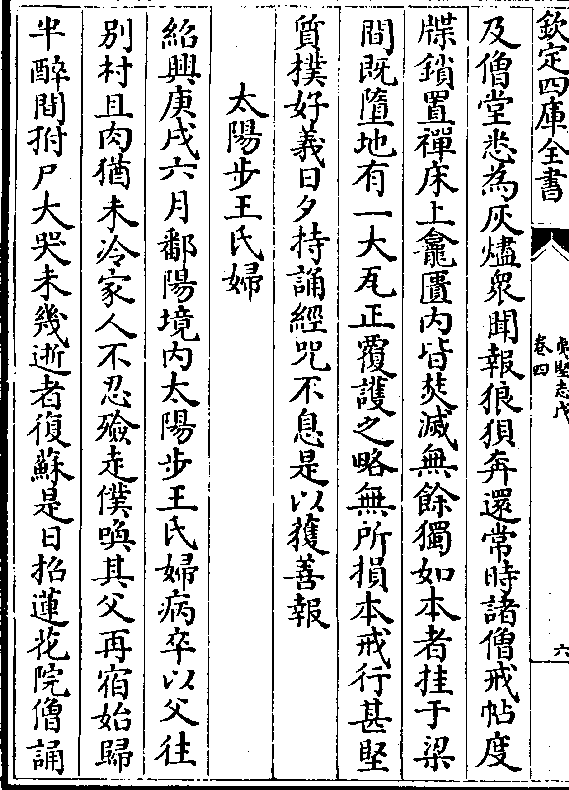 欽定四庫全書
夷堅志戊
卷四
六
及僧堂悉為灰燼衆聞報狼狽奔還常時諸僧戒帖度
牒鎖置禪床上龕匱内皆焚滅無餘獨如本者挂于梁
間既墮地有一大瓦正覆護之略無所損本戒行甚堅
質樸好義日夕持誦經咒不息是以獲善報
太陽步王氏婦
紹興庚戌六月鄱陽境内太陽步王氏婦病卒以父往
别村且肉猶未冷家人不忍殮走僕喚其父再宿始歸
半醉間拊尸大哭未幾逝者復蘇是日招蓮花院僧誦